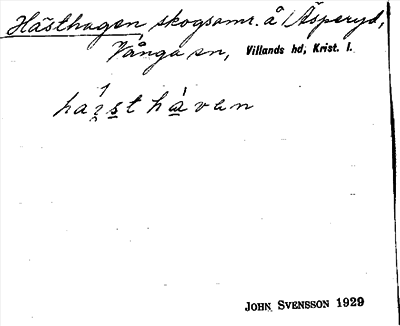 Hästhagen, skogsomr. å Äsperyd,
Vånga sn, Villands hd, Krist. l.
haꝛst håvan
JOHN SVENSSON 1929